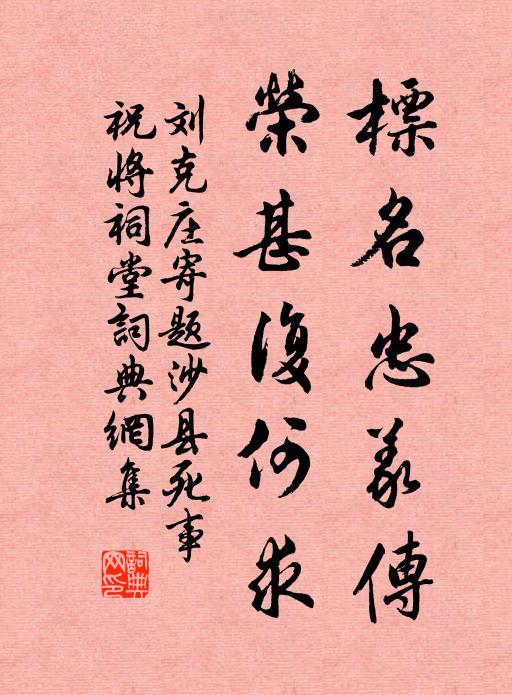 標名忠義傳
榮甚復何求
刘克庄寄题沙县死事
祝将祠堂詞典網集
詞典网印